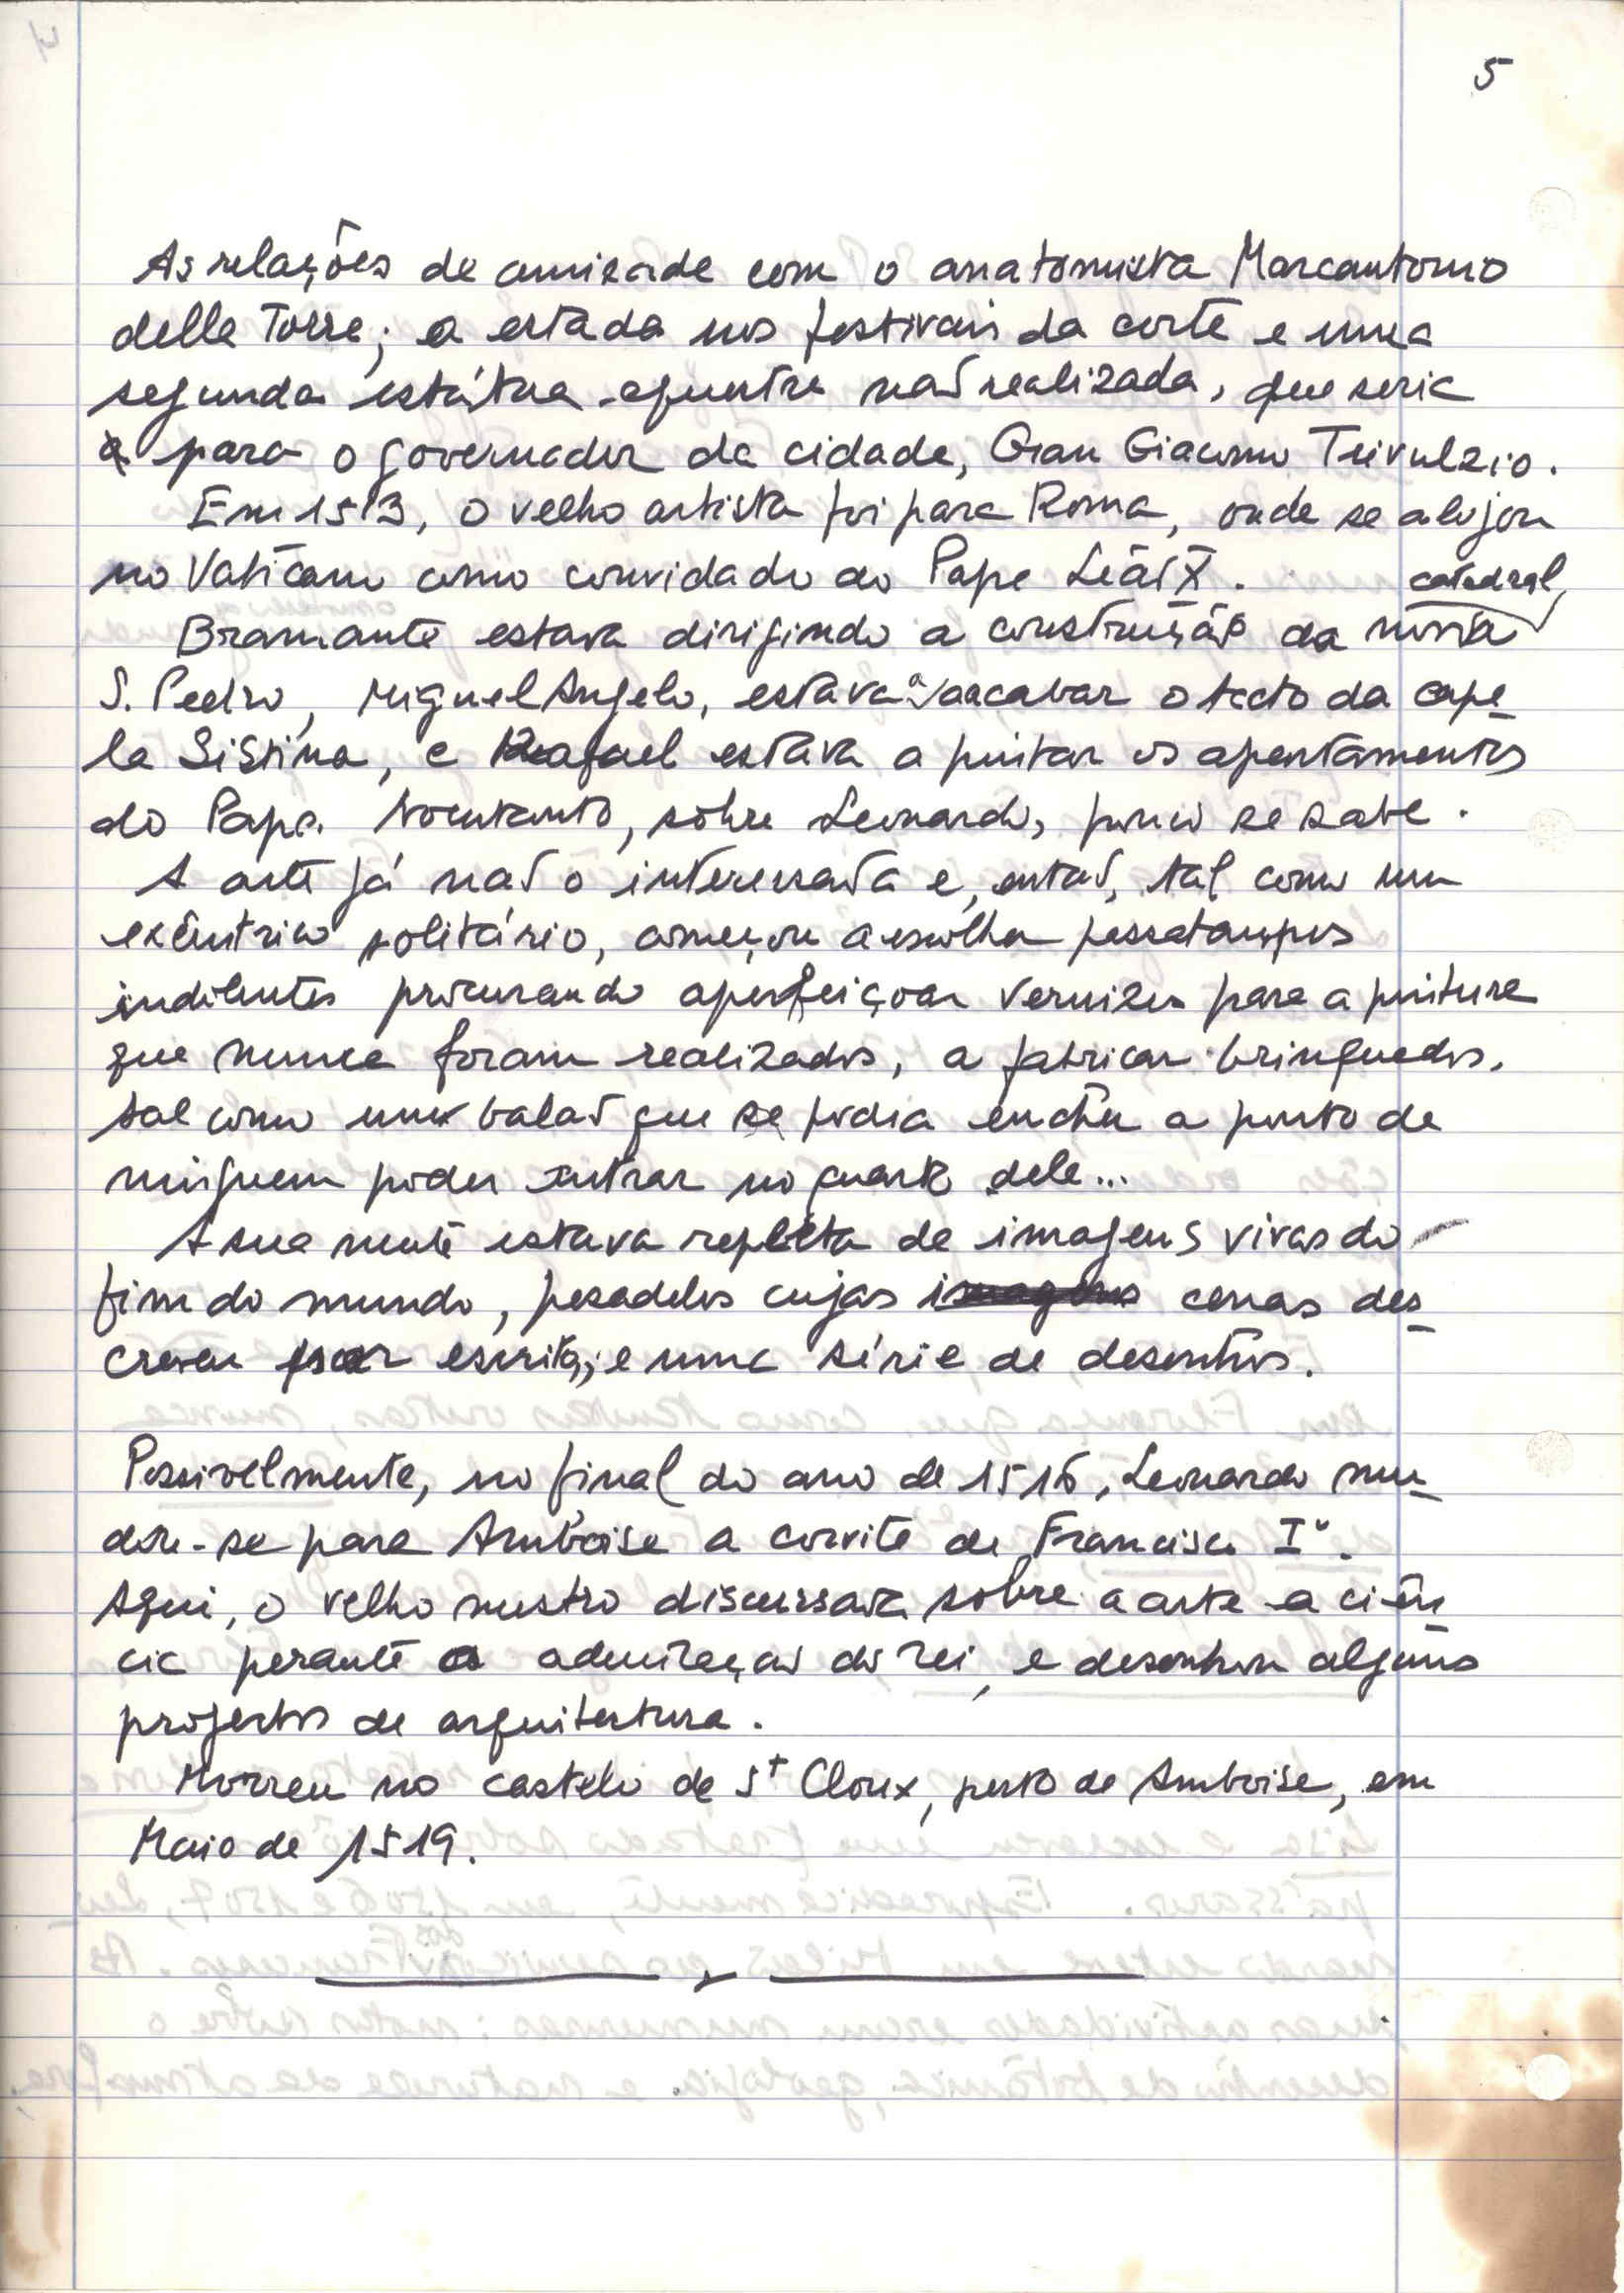 5
As relações de amizade com o anatomista Marcantonio
delle Torre; a estada nos festivais da corte e uma
segunda estátua equestre não realizada, que seria
para o governador da cidade, Gian Giacomo Trivulzio.
Em 1513, o velho artista foi para Roma, onde se alojou
no Vaticano como convidado do Papa Leão X.
catedral,
Bramante estava dirigindo a construção da nova
S. Pedro, Miguel Angelo, estava a acabar o tecto da cape-
la Sistina, e Rafael estava a pintar os apartamentos
do Papa. No entanto, sôbre Leonardo, pouco se sabe.
A arte já não o interessava e, então, tal como um
excêntrico solitário, começou a escolher passatempos
indolentes procurando aperfeiçoar vernizes para a pintura
que nunca foram realizados, a fabricar brinquedos,
tal como um balão que se podia encher a ponto de
ninguem poder entrar no quarto dele...
A sua mente estava repleta de imagens vivas do
fim do mundo, pesadelos cujas imagens cenas des-
creveu por escrito, e numa série de desenhos.
Possivelmente, no final do ano de 1516, Leonardo mu-
dou-se para Amboise a convite de Francisco Iº.
Aqui, o velho mestre discursava sobre a arte e a ciên-
cia perante a admiração do rei, e desenhou alguns
projectos de arquitectura.
Morreu no castelo de St Cloux, perto de Amboise, em
Maio de 1519.